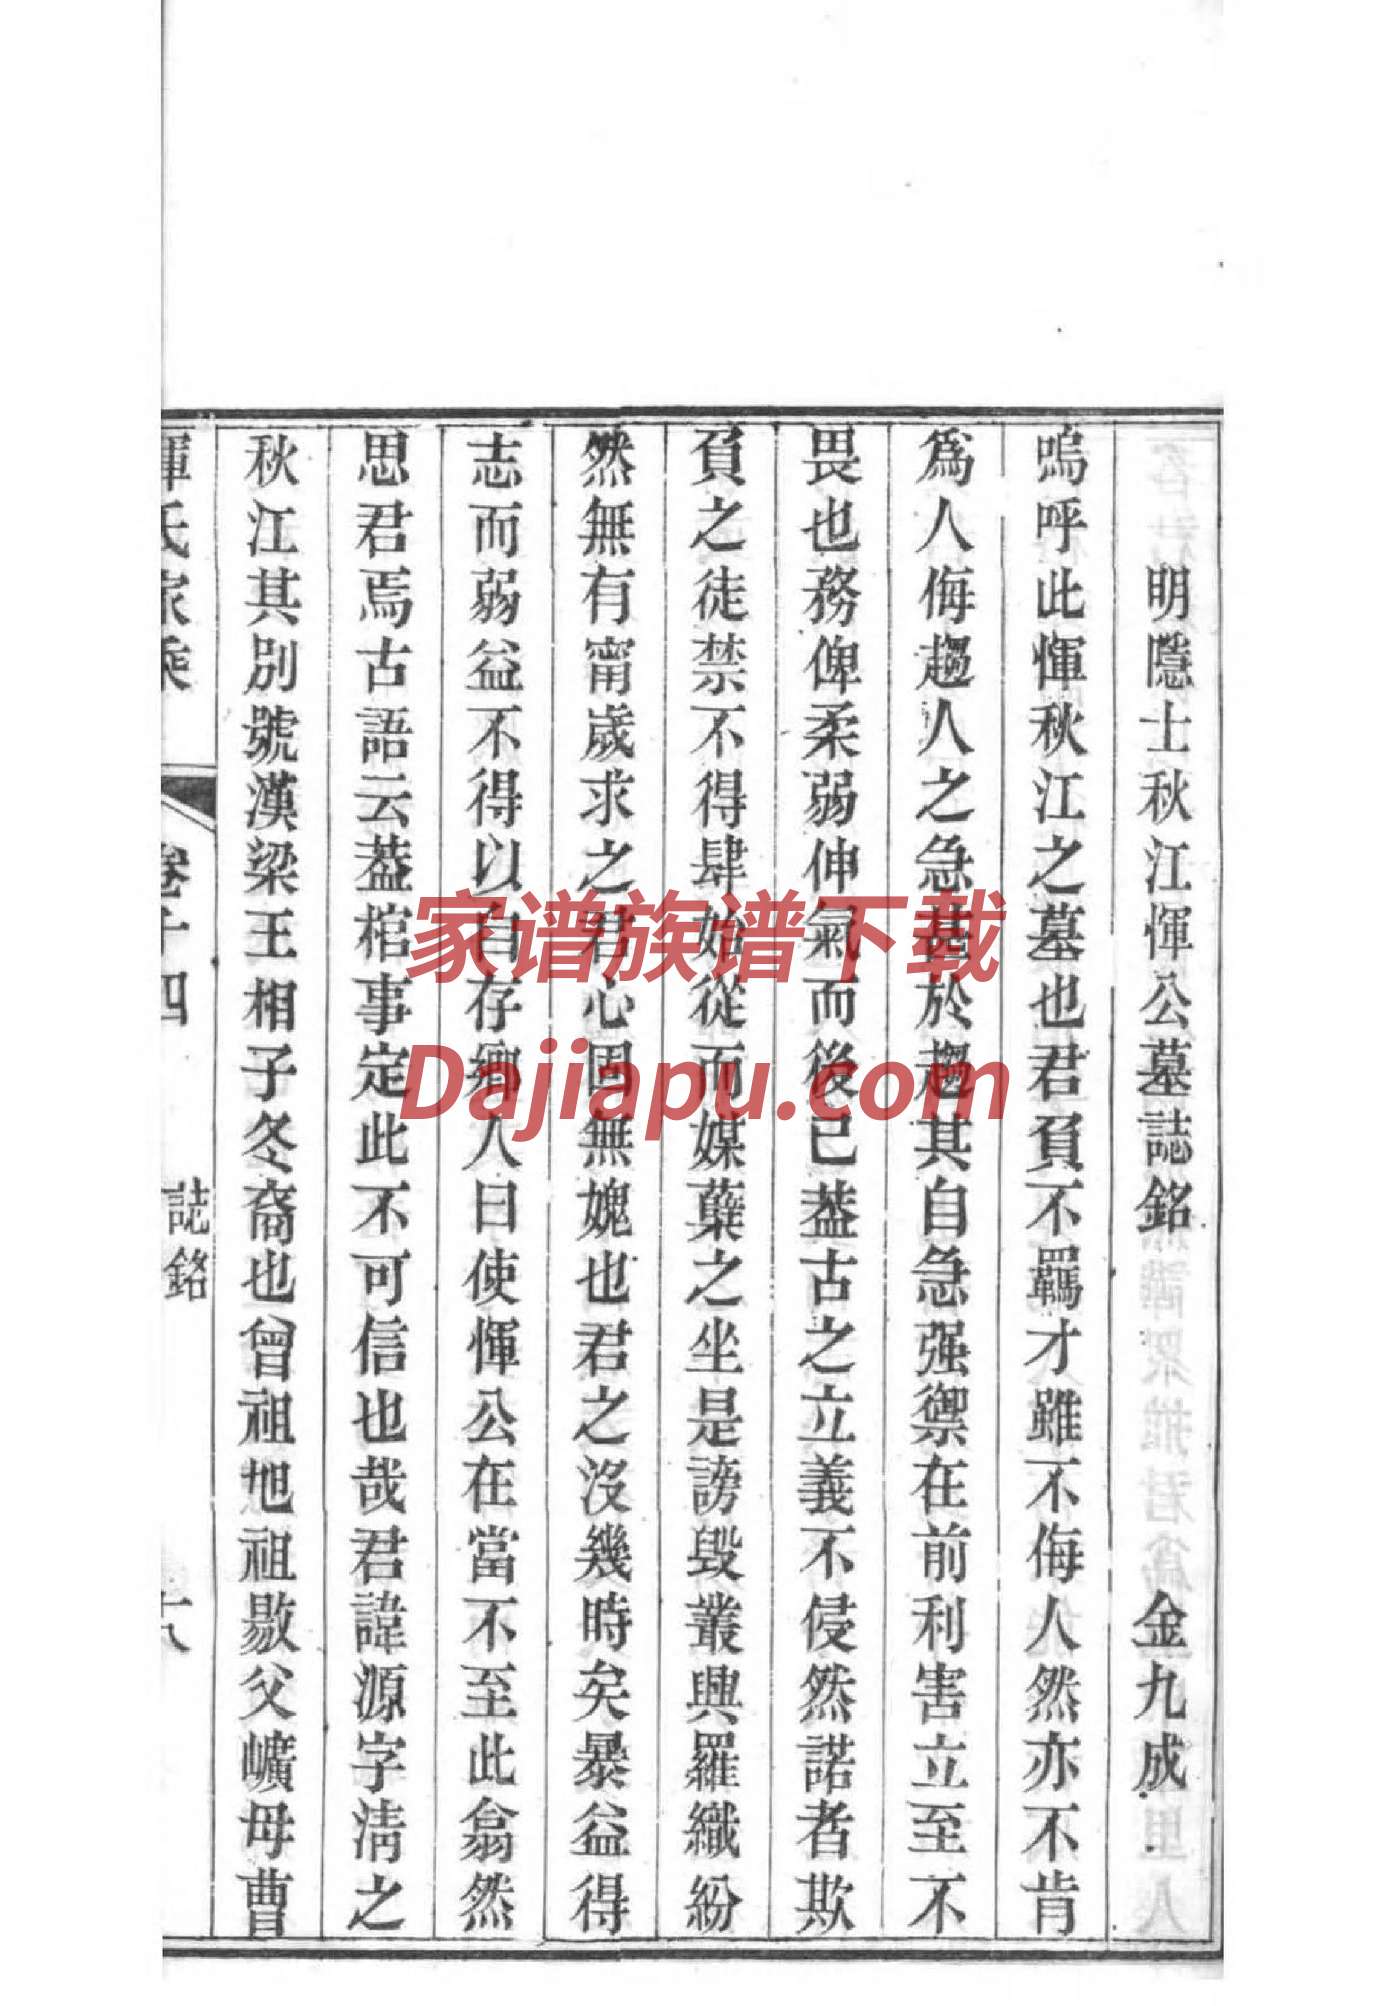 明隱士秋江惲公墓誌銘　金九成
嗚呼此惲秋江之墓也君負不羈才雖不侮人然亦不肯
爲人侮趨人之急甚於趨其自急强禦在前利害立至不
畏也務俾柔弱伸氣而後已葢古之立義不侵然諾者欺
負之徒禁不得肆始從而媒蘗之坐是謗毀叢興羅織紛
然無有甯歲求之君心固無媿也君之沒幾時矣暴益得
志而弱益不得以自存鄉人曰使惲公在當不至此翕然
思君焉古語云葢棺事定此不可信也哉君諱源字淸之
秋江其別號漢梁王相子冬裔也曾祖旭祖敭父㠠母曹
惲氏家乘　卷十四　誌銘　十八
家谱族谱下载
Dajiapu.com